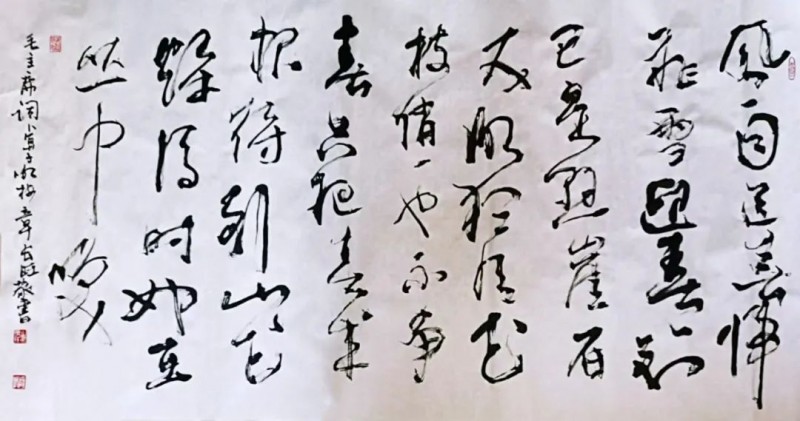 風雨送春归
飛雪迎春到
已是悬崖百
丈冰犹有花
枝俏々也不争
春只把春来
报待到山花
烂漫时她在
丛中笑
毛主席词卜算子咏梅 敬书